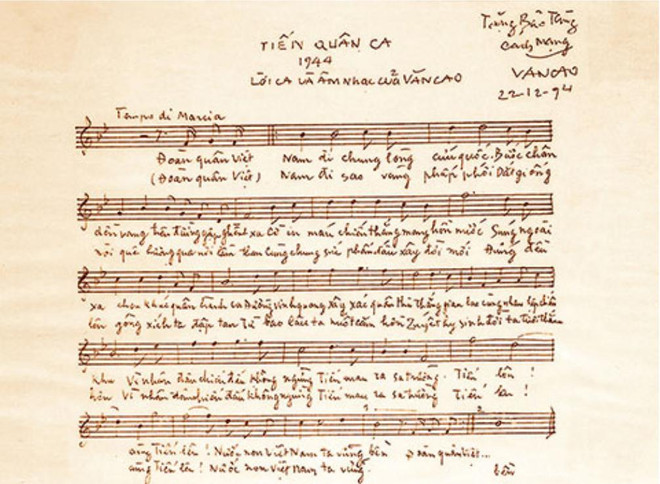 TIẾN QUÂN CA
1944
LỜI CA VÀ ÂM NHẠC CỦA VĂN CAO
Tặng Bảo Tàng
Cách Mạng
VĂN CAO
22-12-94
Tempo di Marcia
Đoàn quân Việt Nam đi chung lòng cứu quốc. Bước chân
(Đoàn quân Việt) Nam đi sao vàng phấp phới Dắt giống
dồn vang trên đường gập ghềnh xa Cờ in máu chiến thắng mang hồn nước Súng ngoài
nòi quê hương qua nơi lầm than Cùng chung sức phấn đấu xây đời mới Đứng đều
xa chen khúc quân hành ca Đường vinh quang xây xác quân thù Thắng gian lao cùng nhau lập chiến
lên gông xích ta đập tan Từ bao lâu ta nuốt căm hờn Quyết hy sinh đời ta tươi thắm
khu Vì nhân dân chiến đấu không ngừng Tiến mau ra sa trường. Tiến lên!
hơn Vì nhân dân chiến đấu không ngừng Tiến mau ra sa trường Tiến lên!
cùng Tiến lên! Nước non Việt Nam ta vững bền Đoàn quân Việt...
cùng Tiến lên! Nước non Việt Nam ta vững. bền